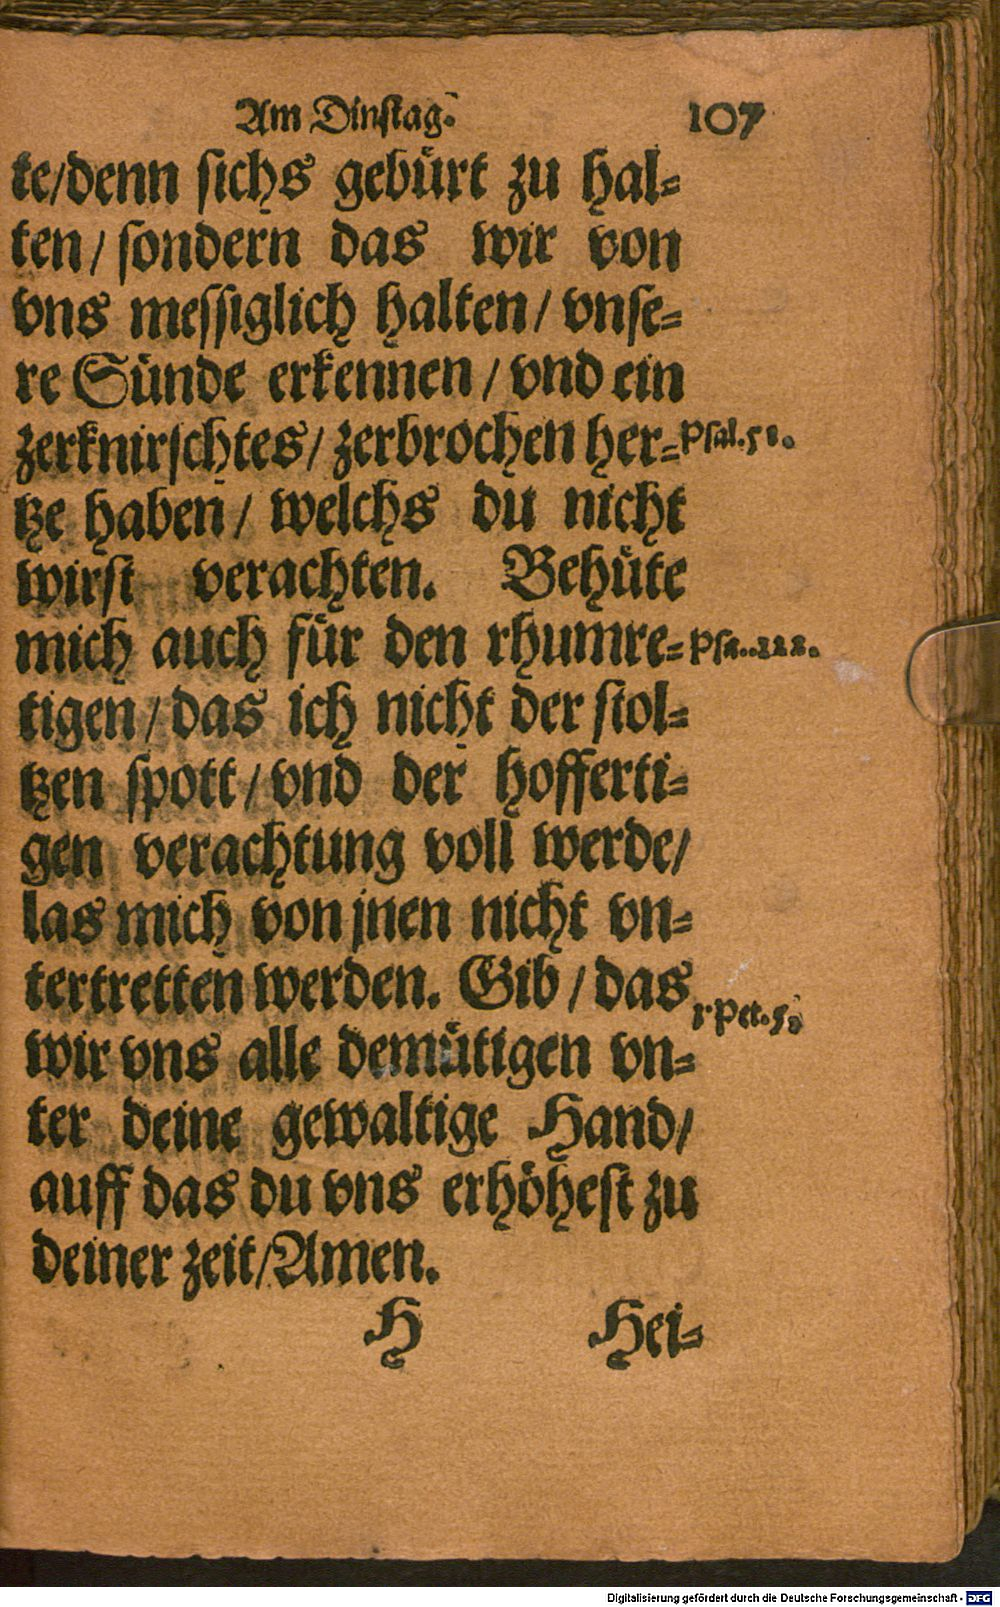 Am Dinstag. 107
te/denn sichs gebürt zu hal=
ten/ sondern das wir von
vns messiglich halten/ vnse=
re Sünde erkennen/ vnd ein
zerknirschtes/ zerbrochen her= Psal.51.
tze haben/ welchs du nicht
wirst verachten. Behüte
mich auch für den rhumre=
tigen/ das ich nicht der stol=
tzen spott/ vnd der hofferti=
gen verachtung voll werde/
las mich von jnen nicht vn=
tertretten werden. Gib/ das 1.Pet.5.
wir vns alle demütigen vn=
ter deine gewaltige Hand/
auff das du vns erhöhest zu
deiner zeit/Amen.
H Hei=
Digitalisierung gefördert durch die Deutsche Forschungsgemeinschaft - DFG